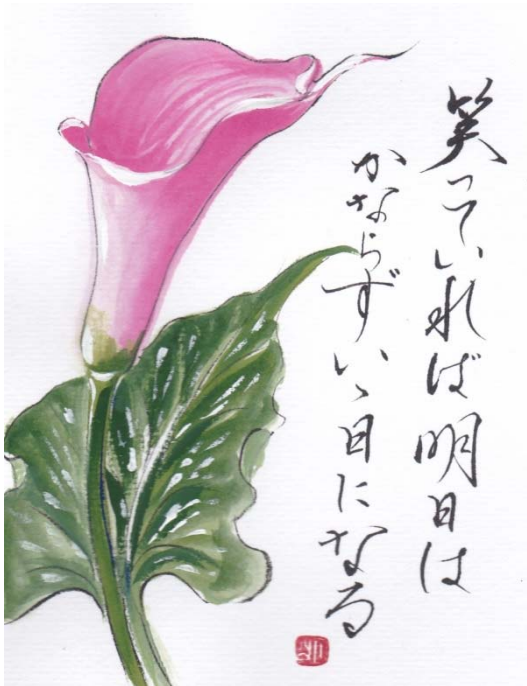 笑っていれば明日は
かならずいゝ日になる